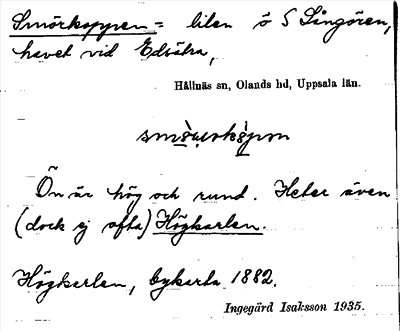 Smörkoppen = liten ö S Sångören,
havet vid Edsätra,
Hållnäs sn, Olands hd, Uppsala län.
Ön är hög och rund. Heter även
(dock ej ofta) Högkarlen.
Högkarlen, bykarta 1882.
Ingegärd Isaksson 1935.